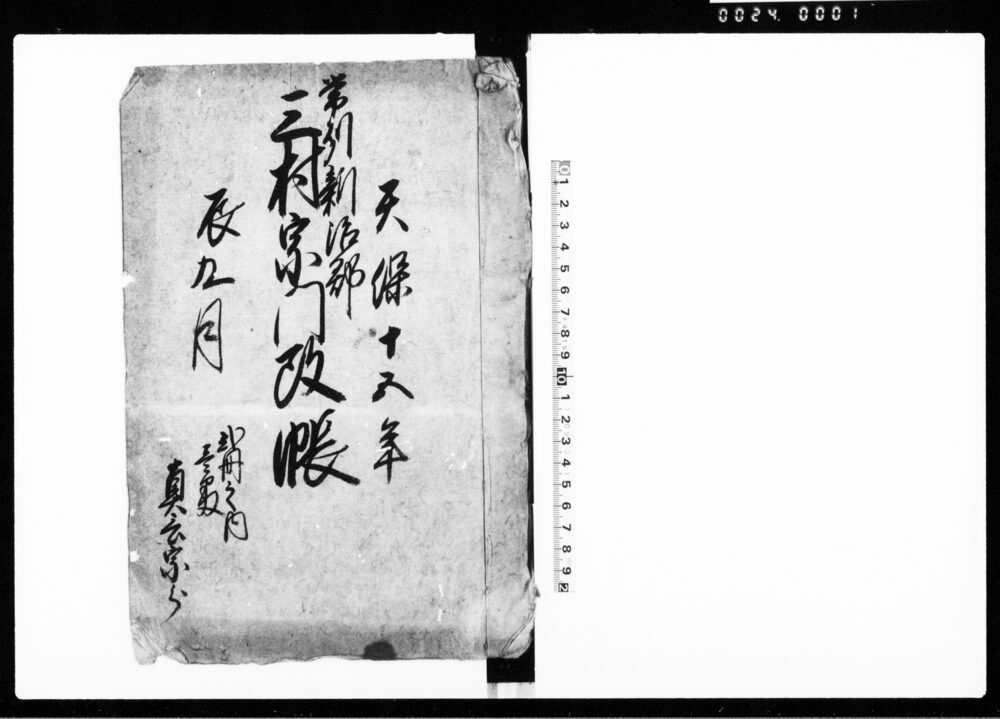 0024. 0001
天保十五年
常州新治郡
三村宗門改帳
辰九月
弐冊之内
真言宗分
0 1 2 3 4 5 6 7 8 9 10 1 2 3 4 5 6 7 8 9 2